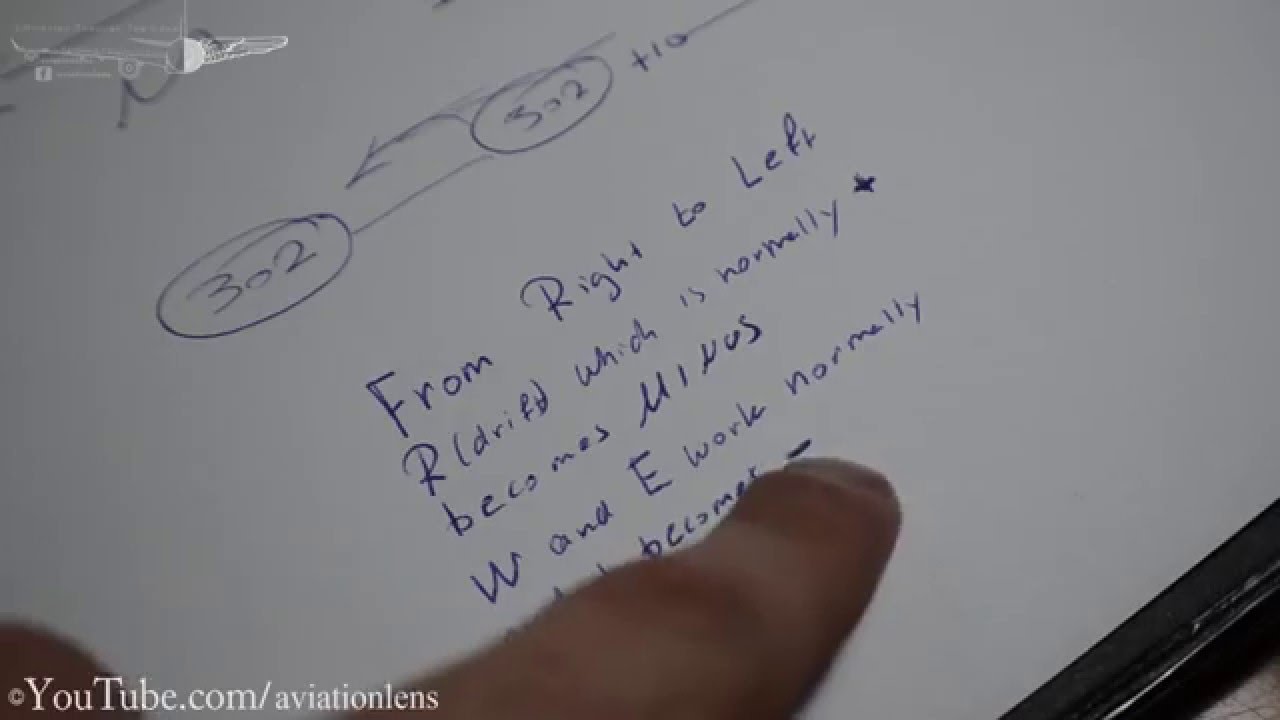 302
+10
302
From Right to Left
R(drift) which is normally *
becomes MINUS
W and E work normally
becomes -
©YouTube.com/aviationlens